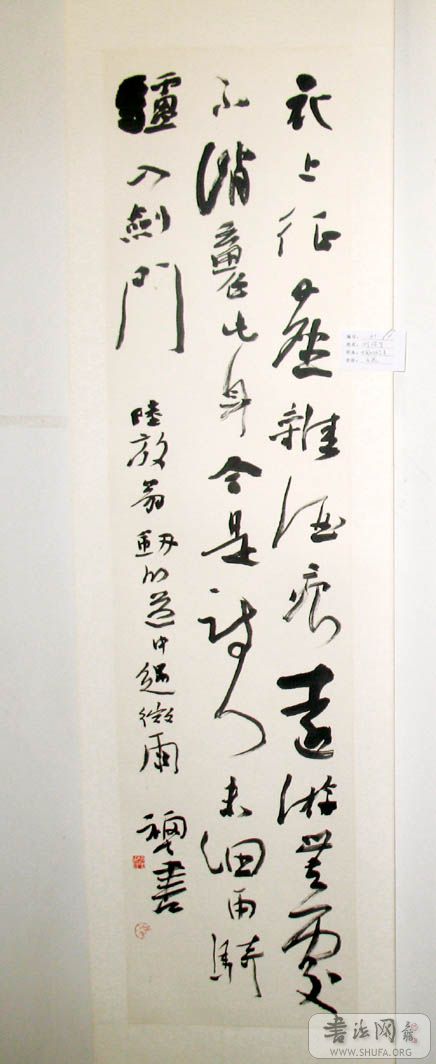 衣上征塵雜酒痕遠游無處
不消魂此身合是詩人未細雨騎
驢入劍門
陸放翁劍門道中遇微雨
書
書法网
WWW.SHUFA.ORG